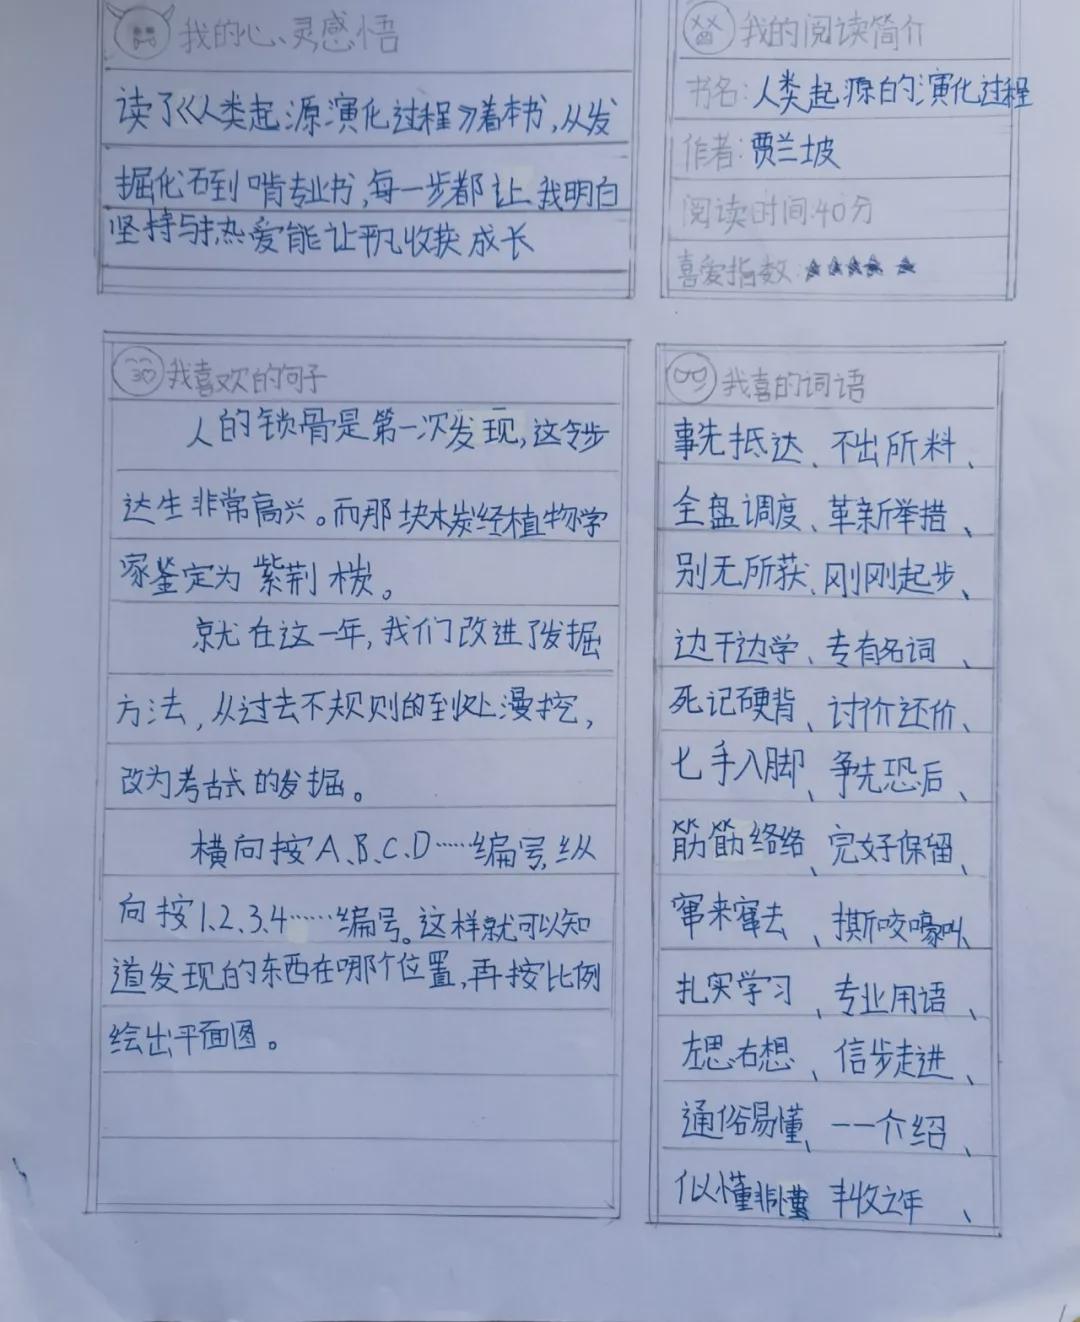 我的心灵感悟
读了《人类起源演化过程》着本书,从发
掘化石到啃专业书,每一步都让我明白
坚持与热爱能让平凡收获成长
我的阅读简介
书名:人类起源的演化过程
作者:贾兰坡
阅读时间:40分
喜爱指数:★★★★★
我喜欢的句子
人的锁骨是第一次发现,这令步
达生非常高兴。而那块木炭经植物学
家鉴定为紫荆木炭。
就在这一年,我们改进了发掘
方法,从过去不规则的到处漫挖,
改为考古式的发掘。
横向按A、B、C、D……编号,纵
向按1.2.3.4……编号。这样就可以知
道发现的东西在哪个位置,再按比例
绘出平面图。
我喜的词语
事先抵达、不出所料、
全盘调度、革新举措、
别无所获、刚刚起步、
边干边学、专有名词、
死记硬背、讨价还价、
七手八脚、争先恐后、
筋筋络络、完好保留、
窜来窜去、撕咬嚎叫、
扎实学习、专业用语、
左思右想、信步走进、
通俗易懂、一一介绍、
似懂非懂 丰收之年、